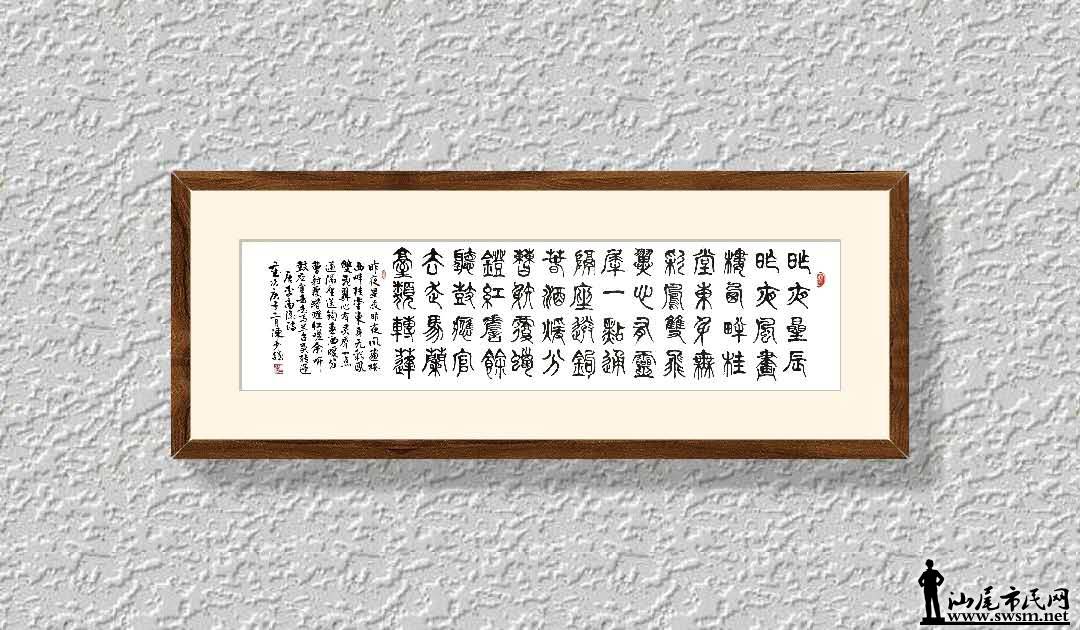 昨夜星辰
昨夜風畫
樓西畔桂
堂東身無
彩鳳雙飛
翼心有靈
犀一點通
隔座送鉤
春酒暖分
曹射覆蠟
鐙紅嗟餘
聽鼓應官
去走馬蘭
臺類轉蓬
昨夜星辰昨夜風畫樓
西畔桂堂東身無彩鳳
雙飛翼心有靈犀一點
通隔座送鉤春酒暖分
曹射覆蠟燈紅嗟余聽
鼓應官去走馬蘭台類轉蓬
唐李商隱詩
庚子二月陳
汕尾市民网
www.swsm.net